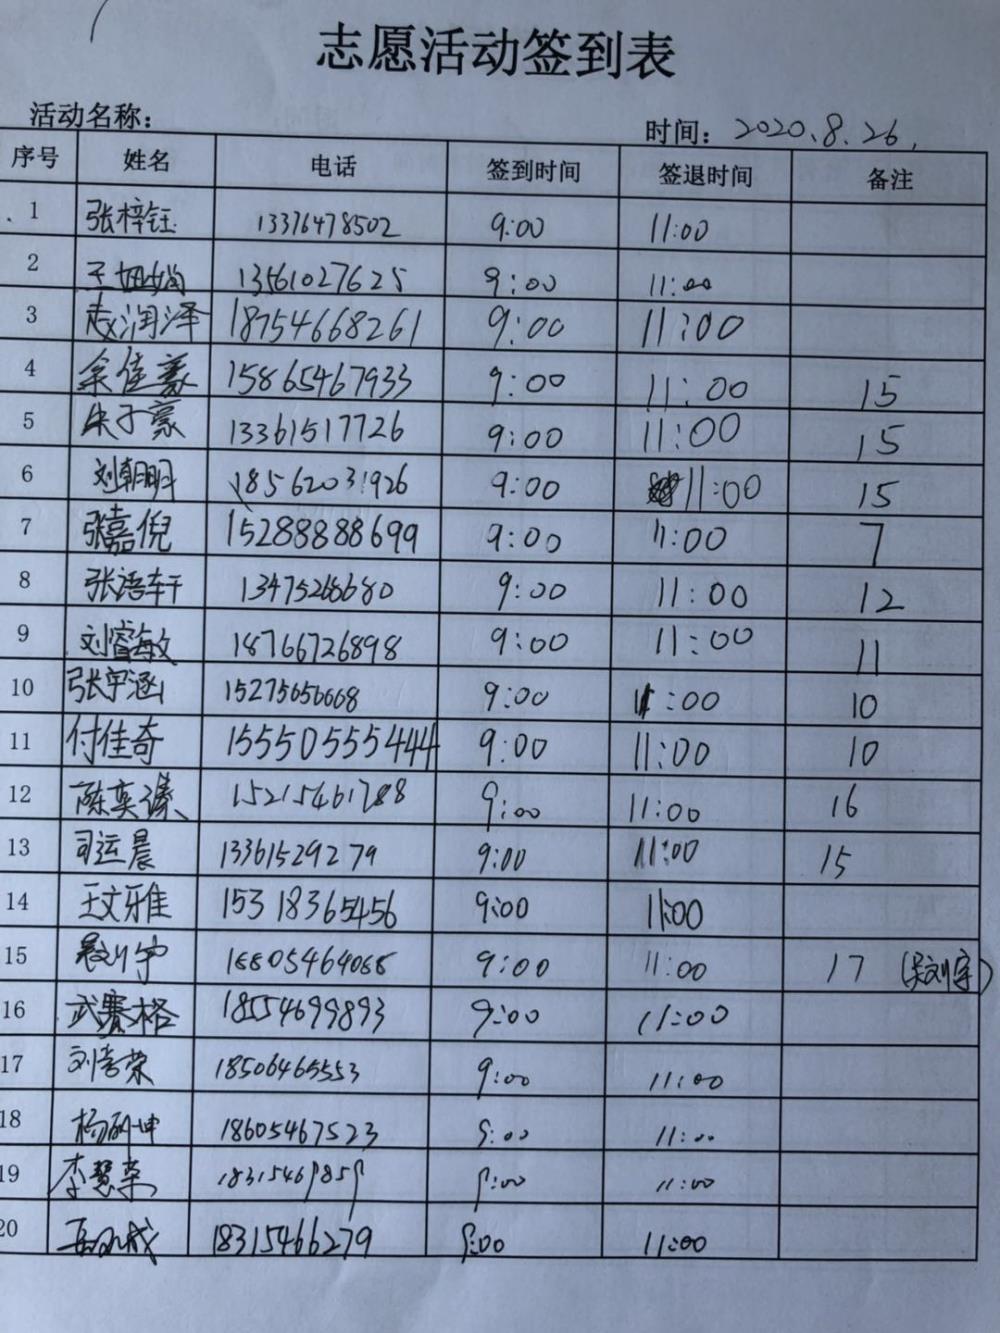 志愿活动签到表
活动名称：
时间：2020.8.26.
序号 姓名 电话 签到时间 签退时间 备注
1 张梓钰 13376478502 9:00 11:00
2 13561027625 9:00 11:00
3 赵润泽 18754668261 9:00 11:00
4 余佳豪 15865467933 9:00 11:00 15
5 朱子豪 13361517726 9:00 11:00 15
6 刘朝明 18562031926 9:00 11:00 15
7 张嘉倪 15288888699 9:00 11:00 7
8 张语轩 13475268680 9:00 11:00 12
9 刘睿敏 18766726898 9:00 11:00 11
10 张宇涵 15275656668 9:00 11:00 10
11 付佳奇 15550555444 9:00 11:00 10
12 陈奕臻 15215461788 9:00 11:00 16
13 司运晨 13361529279 9:00 11:00 15
14 王文雅 15318365456 9:00 11:00
15 9:00 11:00 17
16 武赛格 18554699893 9:00 11:00
17 18506465553 9:00 11:00
18 18605467523 9:00 11:00
19 李慧荣 9:00 11:00
20 18315466279 9:00 11:00